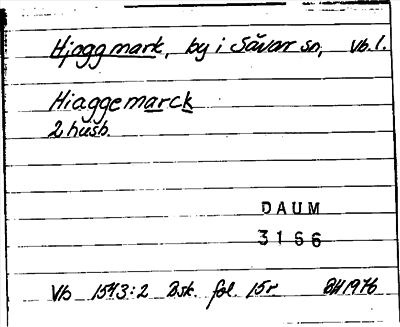 Hjoggmark, by i Sävar sn, Vb.l.
Hiaggemarck
2 husb.
DAUM
3156
Vb 1543:2 Bsk. fol. 15r. BH 1976